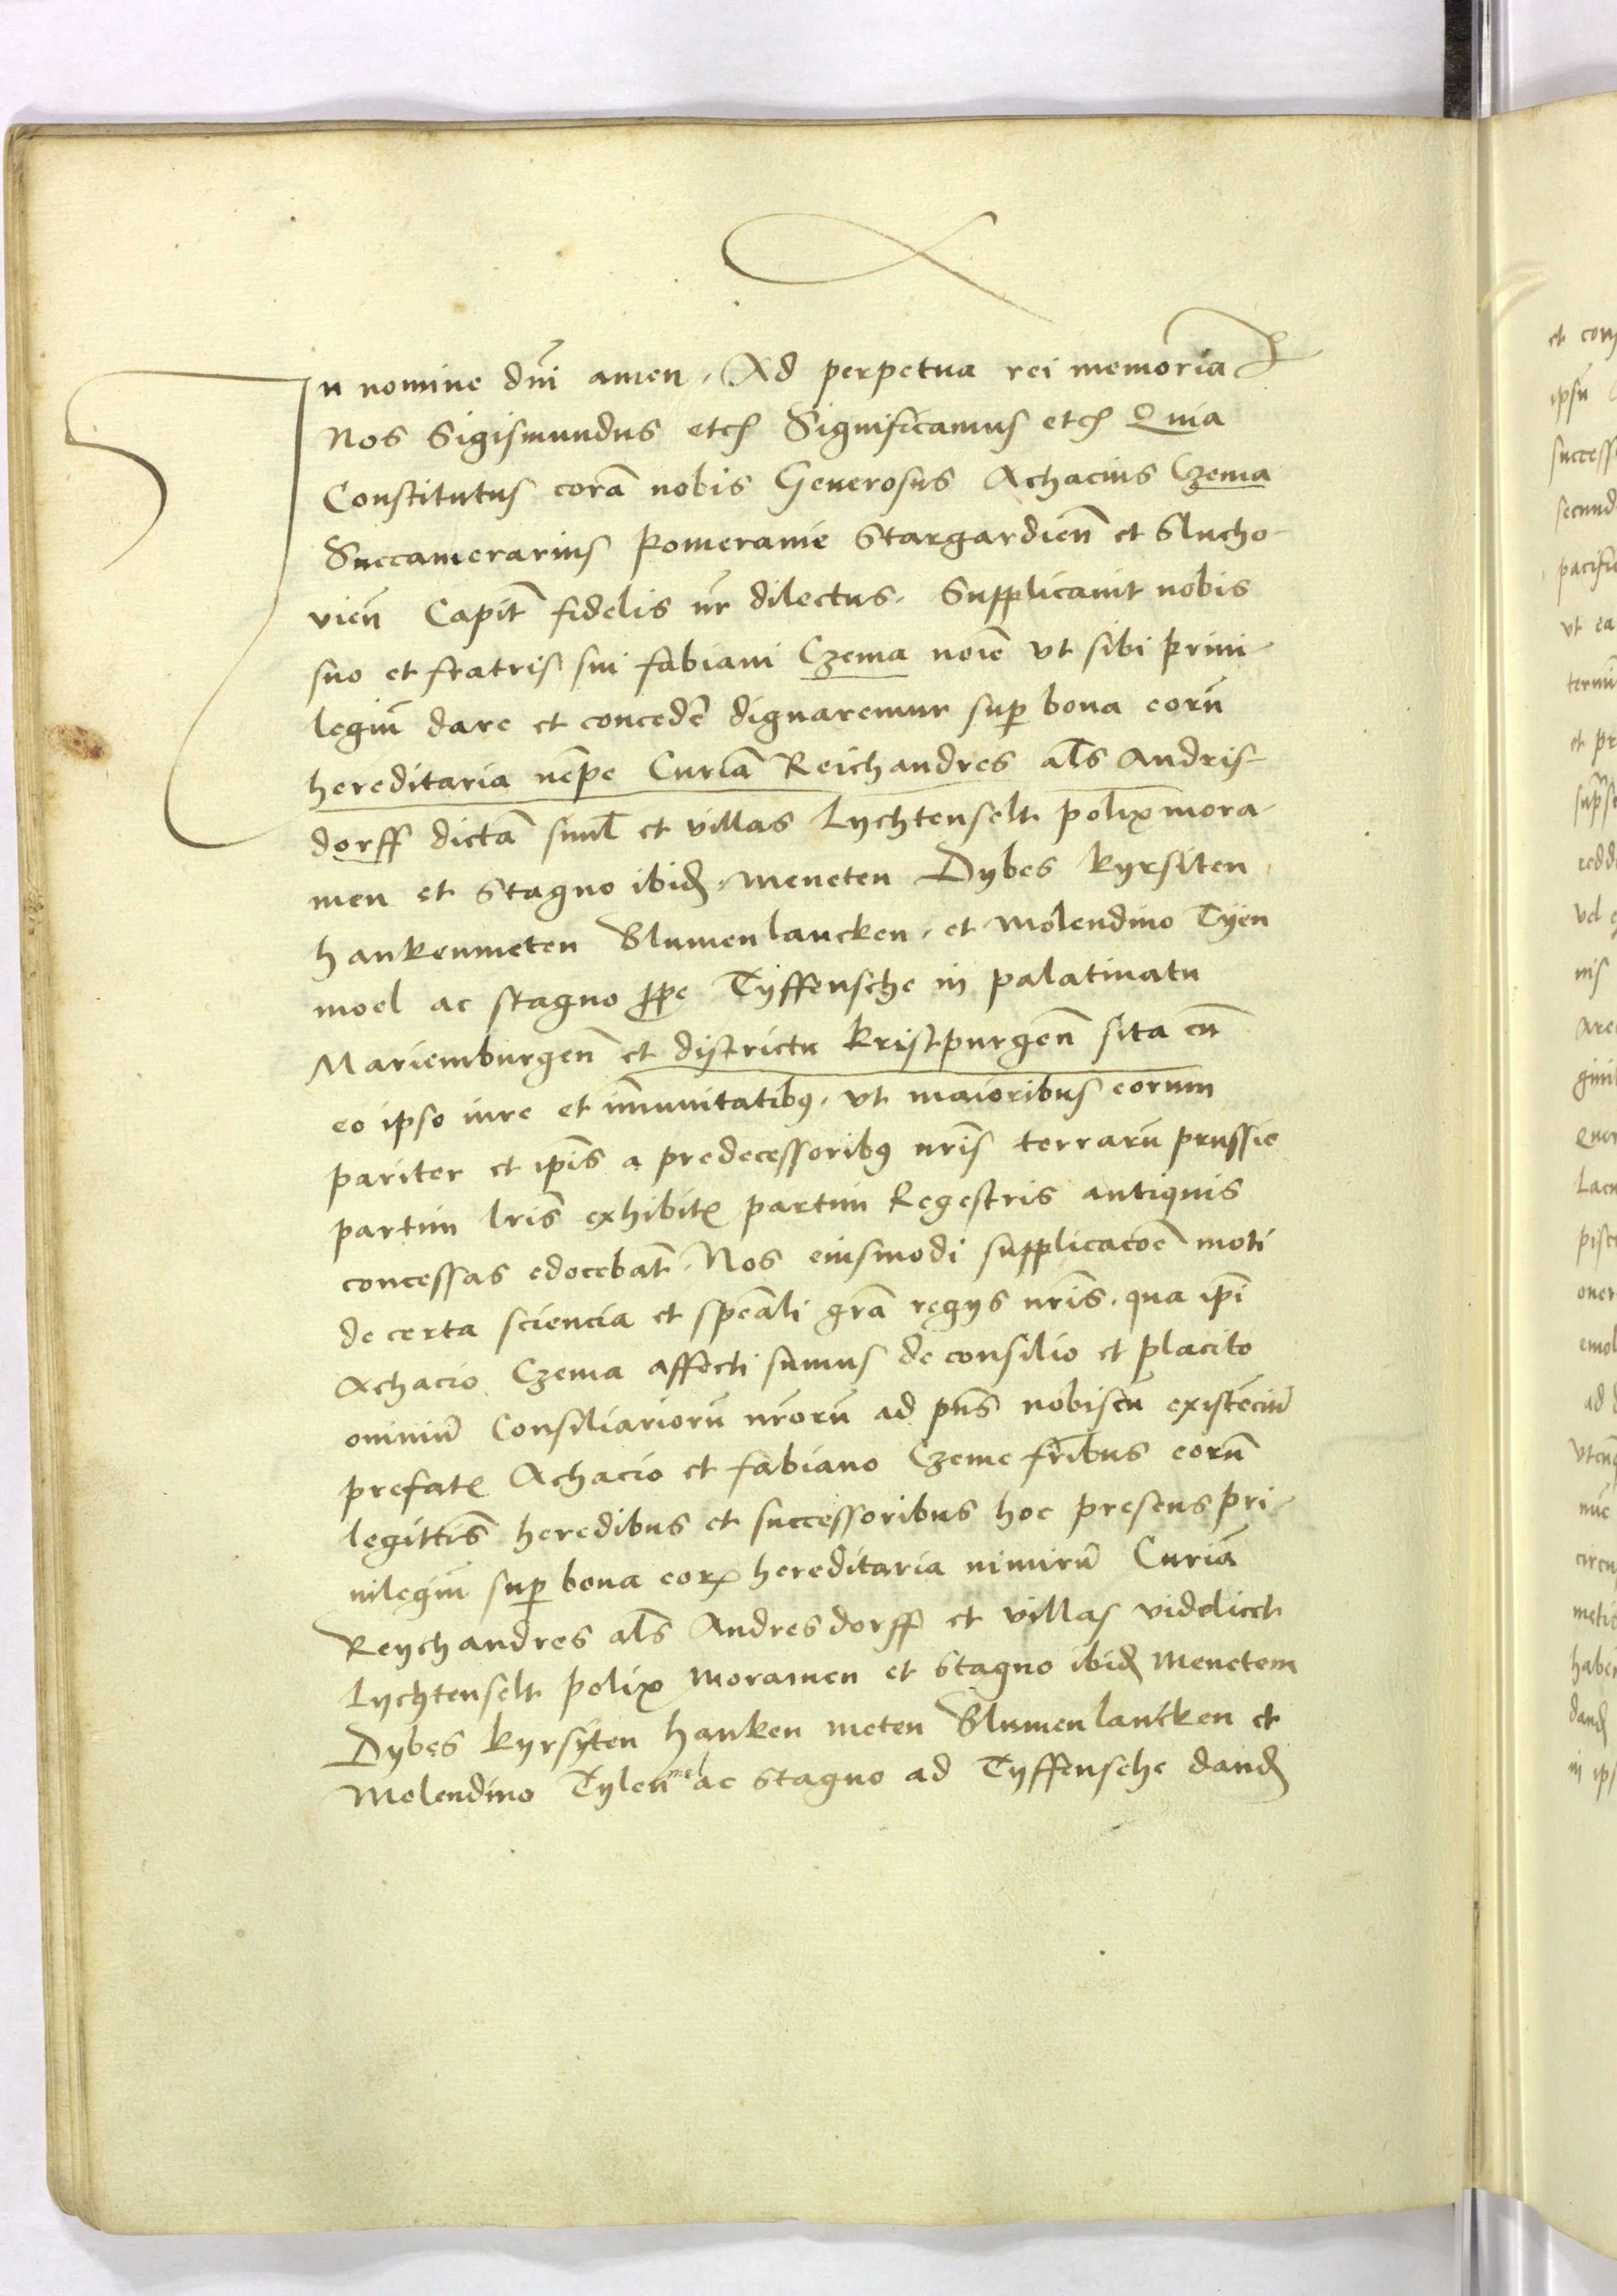 In nomine dni amen. Ad perpetua rei memoria
Nos Sigismundus etc Significamus etc Quia
Constitutus corā nobis Generosus Achacius Czema
Succamerarius Pomeranie Stargardieñ et Slucho-
vieñ Capit fidelis nr dilectus. Supplicavit nobis
suo et fratris sui Fabiani Czema noīe ut sibi privi-
legiū dare et concedē dignaremur sup bona eorū
hereditaria nēpe Curiā Reichandres als Andris-
dorff dictā simul et villas Lychtenfelt polix mora-
men et Stagno ibid. Meneten Dybes kyrsiten
hankenmeten Blumenlancken. et Molendino Tyen
moel ac stagno ꝓpe Tyffensche in palatinatu
Mariemburgeñ et districtu kristpurgeñ sita cū
eo ipso iure et īmunitatibꝯ. ut maioribus eorum
pariter et ip̄is a predecessoribꝯ nris terrarū prussie
partim lris exhibitꝭ partim Regestris antiquis
concessas edocebat. Nos eiusmodi supplicacōe moti
de certa sciencia et speāli grā regijs nris. qua ipi
Achacio Czema affecti sumus de consilio et placito
omniū Consiliariorū nrorū ad pns nobiscū existēciū
prefatꝭ Achacio et Fabiano Czeme fribus eorū
legittis heredibus et successoribus hoc presens pri-
uilegiū sup bona eorꝝ hereditaria nimirū Curiā
Reychandres als Andresdorff et villas videlicet
Lychtenfelt polix Moramen et Stagno ibid Menetem
Dybes kyrsyten hanken meten Blumenlancken et
Molendino Tylen mel ac Stagno ad Tyffensche dand

et con
ipsū
success
secund
pacifi
ut ea
et pr
redd
vel
nis
are
Lacu
pisc
oner
emol
ad
nūc
circu
habe
dand
in ips